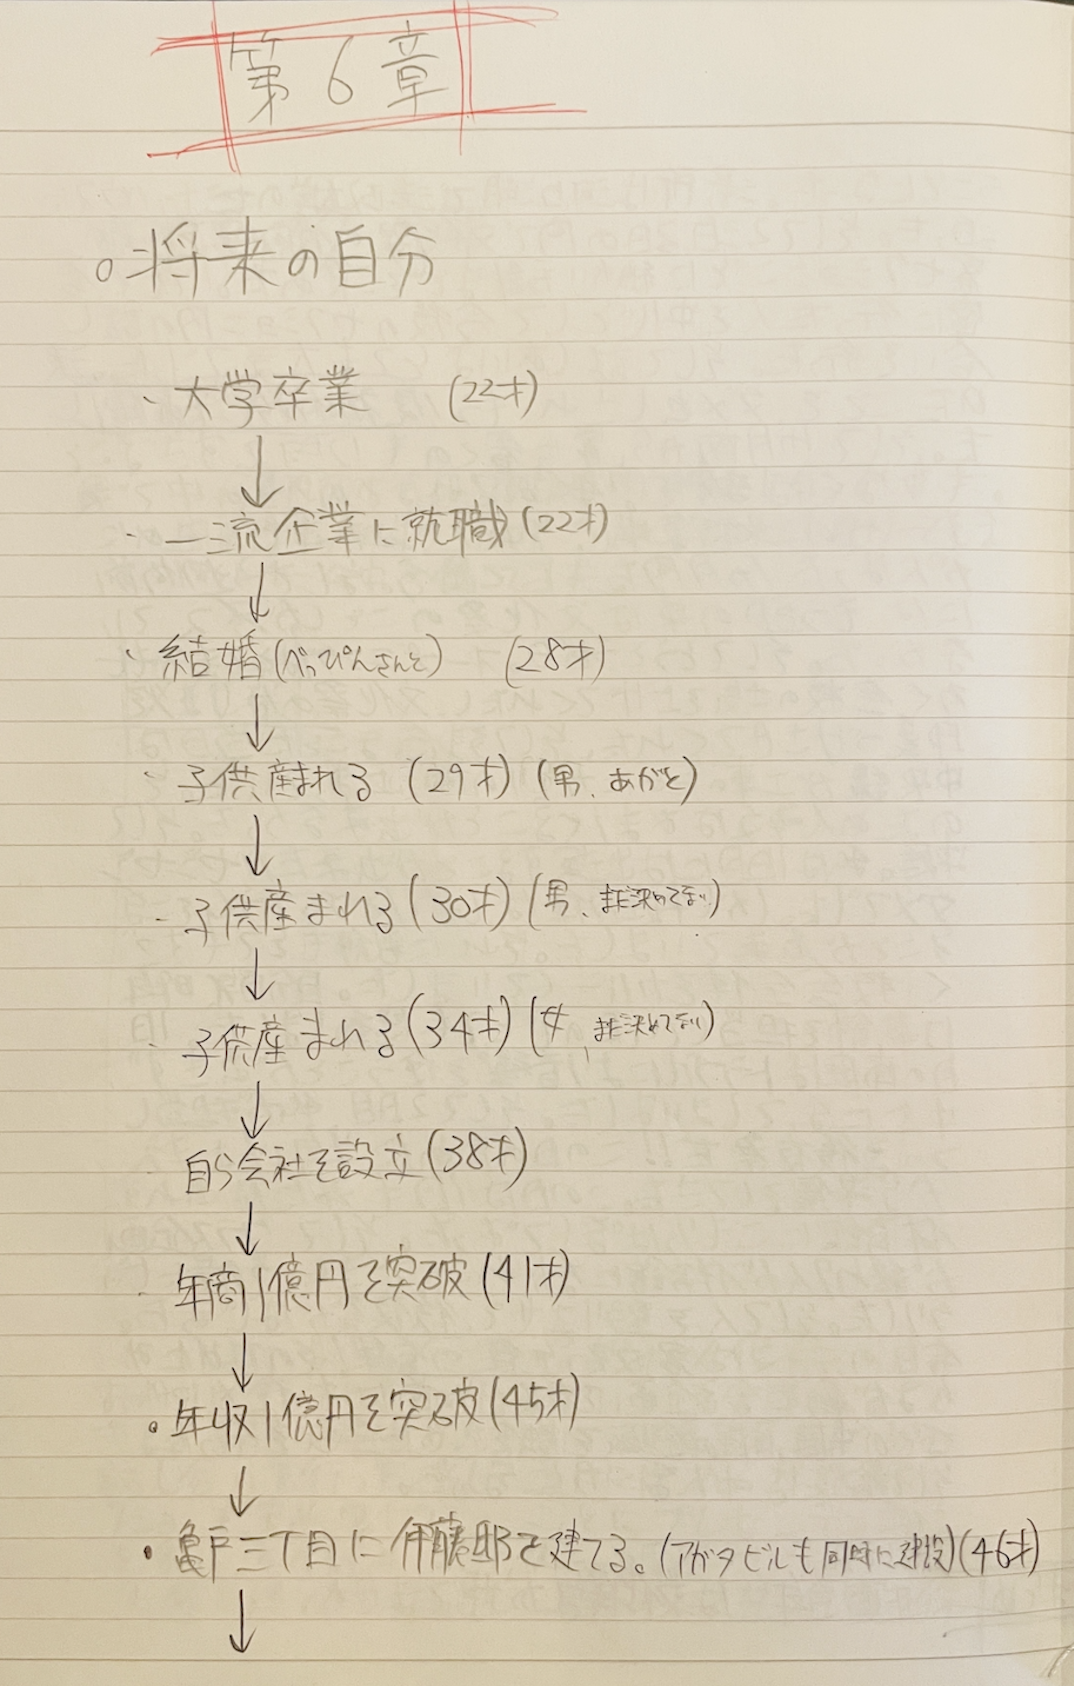 第6章
○将来の自分
・大学卒業 (22才)
↓
・一流企業に就職(22才)
↓
・結婚(べっぴんさんと) (28才)
↓
・子供産まれる (29才) (男、あがと)
↓
・子供産まれる(30才) (男、まだ決めてない)
↓
・子供産まれる(34才) (女、まだ決めてない)
↓
自ら会社を設立(38才)
↓
・年商1億円を突破(41才)
↓
・年収1億円を突破(45才)
↓
・亀戸三丁目に伊藤邸を建てる。(アガタビルも同時に建設)(46才)
↓